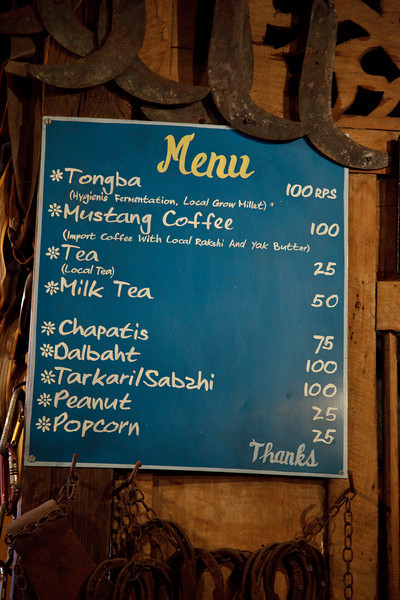 Menu
*Tongba 100 RPS
(Hygienis Fermentation, Local Grow Millet) *
*Mustang Coffee 100
(Import Coffee With Local Rakshi And Yak Butter)
*Tea 25
(Local Tea)
*Milk Tea 50
*Chapatis 75
*Dalbaht 100
*Tarkaril Sabzhi 100
*Peanut 25
*Popcorn 25
Thanks